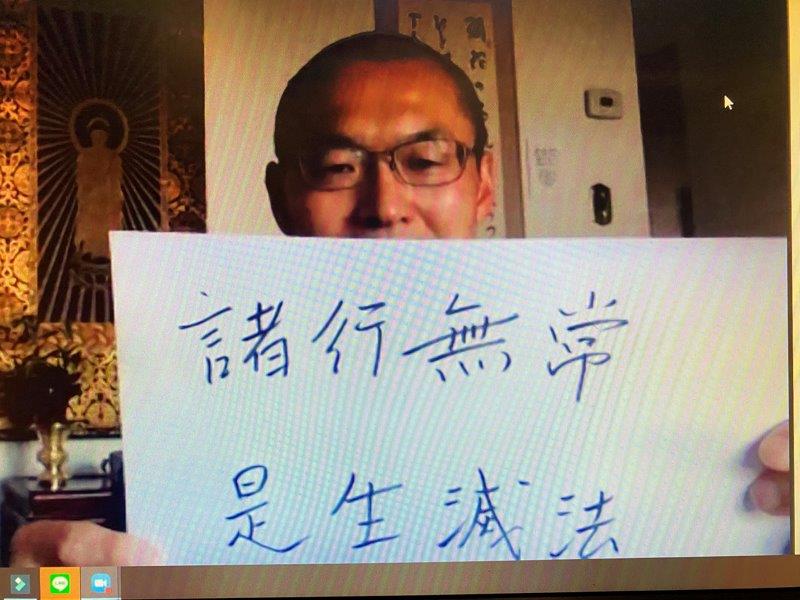 諸行無常
是生滅法
LINE